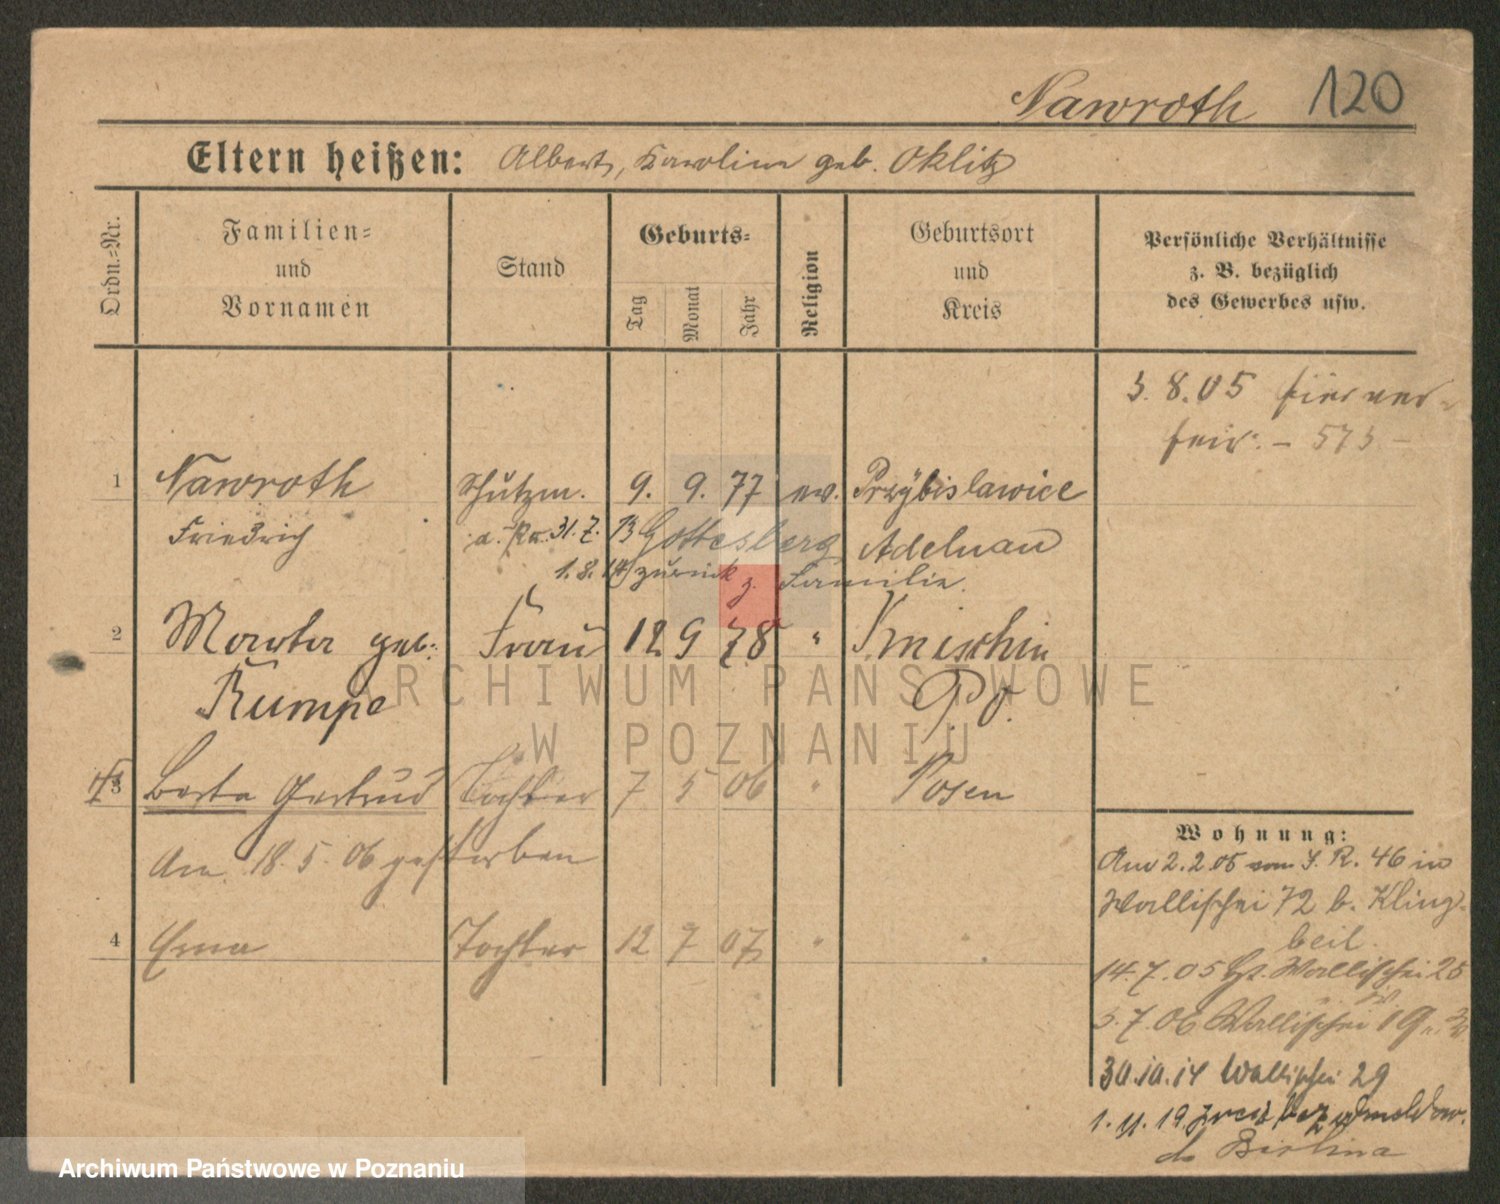 Nawroth 120
Eltern heißen: Albert, Karoline geb. Oklitz
Ordn.-Nr.
Familien-
und
Vornamen
Stand
Geburts-
Tag
Monat
Jahr
Religion
Geburtsort
und
Kreis
Persönliche Verhältnisse
z. B. bezüglich
des Gewerbes usw.
3. 8. 05 hier ver-
heir. – 573 –
1 Nawroth Schutzm. 9. 9. 77 ev. Przybislawice
Friedrich 31. 7. 13 Gottesberg Adelnau
1. 8. 14 zurück z. Familie.
2 Marta geb. Frau 12 9 78 " Kmischin
Rumpe
3 Berta Gertrud Tochter 7 5 06 " Posen
Am 18. 5. 06 gestorben
4 Erna Tochter 12 7 07 " "
Wohnung:
Am 2. 2. 05 vom J. R. 46 in
Wallischei 72 b. Kling-
beil.
14. 7. 05 Wallischei 25
5. 7. 06 Wallischei 19
30.10.14 Wallischei 29
1. 11. 19.
do Berlina
ARCHIWUM PAŃSTWOWE
W POZNANIU
Archiwum Państwowe w Poznaniu